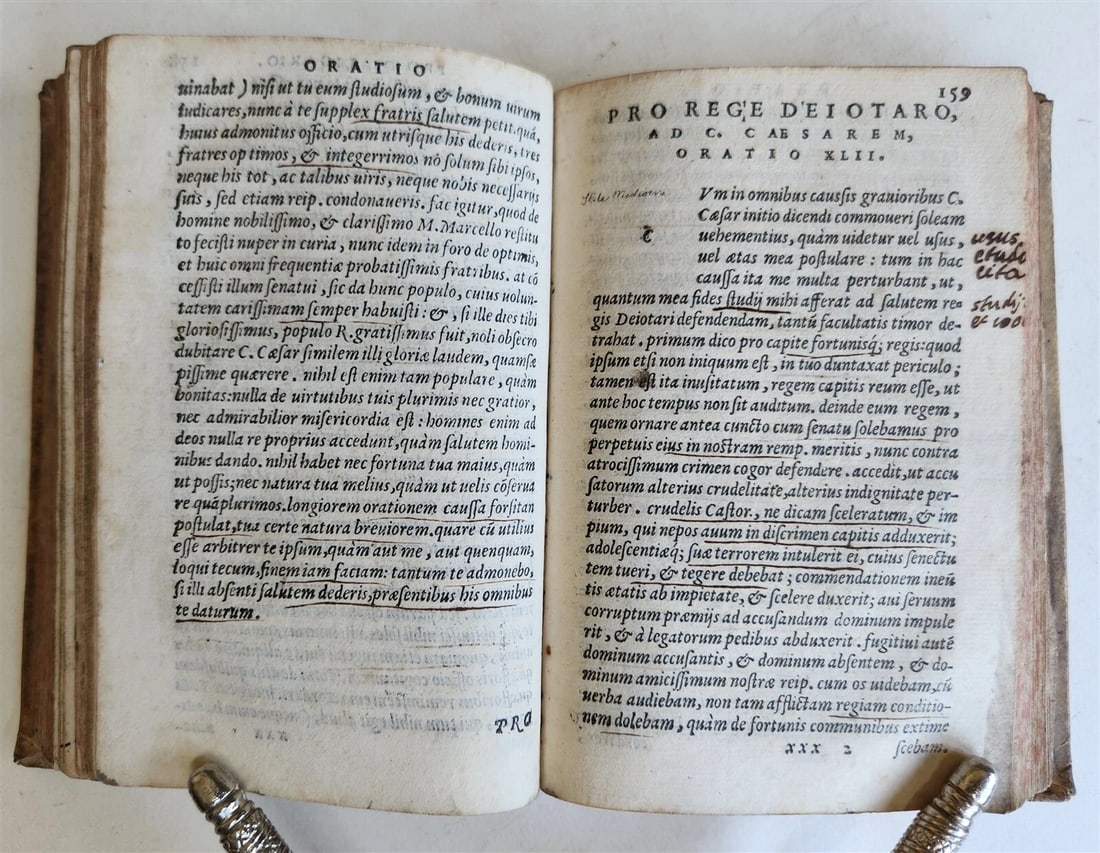 ORATIO
uinabat ) nisi ut tu eum studiosum, & bonum uirum
iudicares, nunc à te supplex fratris salutem petit. quā,
huius admonitus officio, cum utrisque his dederis, tres
fratres optimos, & integerrimos nō solum sibi ipsos,
neque his tot, ac talibus uiris, neque nobis necessarijs
suis, sed etiam reip. condonaueris. fac igitur, quod de
homine nobilissimo, & clarissimo M. Marcello restitu
to fecisti nuper in curia, nunc idem in foro de optimis,
et huic omni frequentiæ probatissimis fratribus. at cō
cessisti illum senatui, sic da hunc populo, cuius uolun-
tatem carissimam semper habuisti: &, si ille dies tibi
gloriosissimus, populo R. gratissimus fuit, noli obsecro
dubitare C. Cæsar similem illi gloriæ laudem, quamsæ
pissime quærere. nihil est enim tam populare, quàm
bonitas: nulla de uirtutibus tuis plurimis nec gratior,
nec admirabilior misericordia est: homines enim ad
deos nulla re proprius accedunt, quàm salutem homi-
nibus dando. nihil habet nec fortuna tua maius, quàm
ut possis; nec natura tua melius, quàm ut uelis cōserua
re quāplurimos. longiorem orationem caussa forsitan
postulat, tua certe natura breuiorem. quare cū utilius
esse arbitrer te ipsum, quàm aut me, aut quenquam,
loqui tecum, finem iam faciam: tantum te admonebo,
si illi absenti salutem dederis, præsentibus his omnibus
te daturum.
PRO
159
PRO REGE DEIOTARO,
AD C. CAESAREM,
ORATIO XLII.
Vm in omnibus caussis grauioribus C.
Cæsar initio dicendi commoueri soleam
c uehementius, quàm uidetur uel usus, usus
uel ætas mea postulare : tum in hac
caussa ita me multa perturbant, ut,
quantum mea fides studij mihi afferat ad salutem re= studij
gis Deiotari defendendam, tantū facultatis timor de-
trahat. primum dico pro capite fortunisq; regis: quod
ipsum etsi non iniquum est, in tuo duntaxat periculo;
tamen est ita inusitatum, regem capitis reum esse, ut
ante hoc tempus non sit auditum. deinde eum regem,
quem ornare antea cuncto cum senatu solebamus pro
perpetuis eius in nostram remp. meritis, nunc contra
atrocissimum crimen cogor defendere. accedit, ut accu
satorum alterius crudelitate, alterius indignitate per-
turber. crudelis Castor, ne dicam sceleratum, & im
pium, qui nepos auum in discrimen capitis adduxerit;
adolescentiæq; suæ terrorem intulerit ei, cuius senectu
tem tueri, & tegere debebat; commendationem ineū
tis ætatis ab impietate, & scelere duxerit; aui seruum
corruptum præmijs ad accusandum dominum impule
rit, & à legatorum pedibus abduxerit. fugitiui autē
dominum accusantis, & dominum absentem, & do-
minum amicissimum nostræ reip. cum os uidebam, cū
uerba audiebam, non tam afflictam regiam conditio-
nem dolebam, quàm de fortunis communibus extime
XXX 2 scebam.